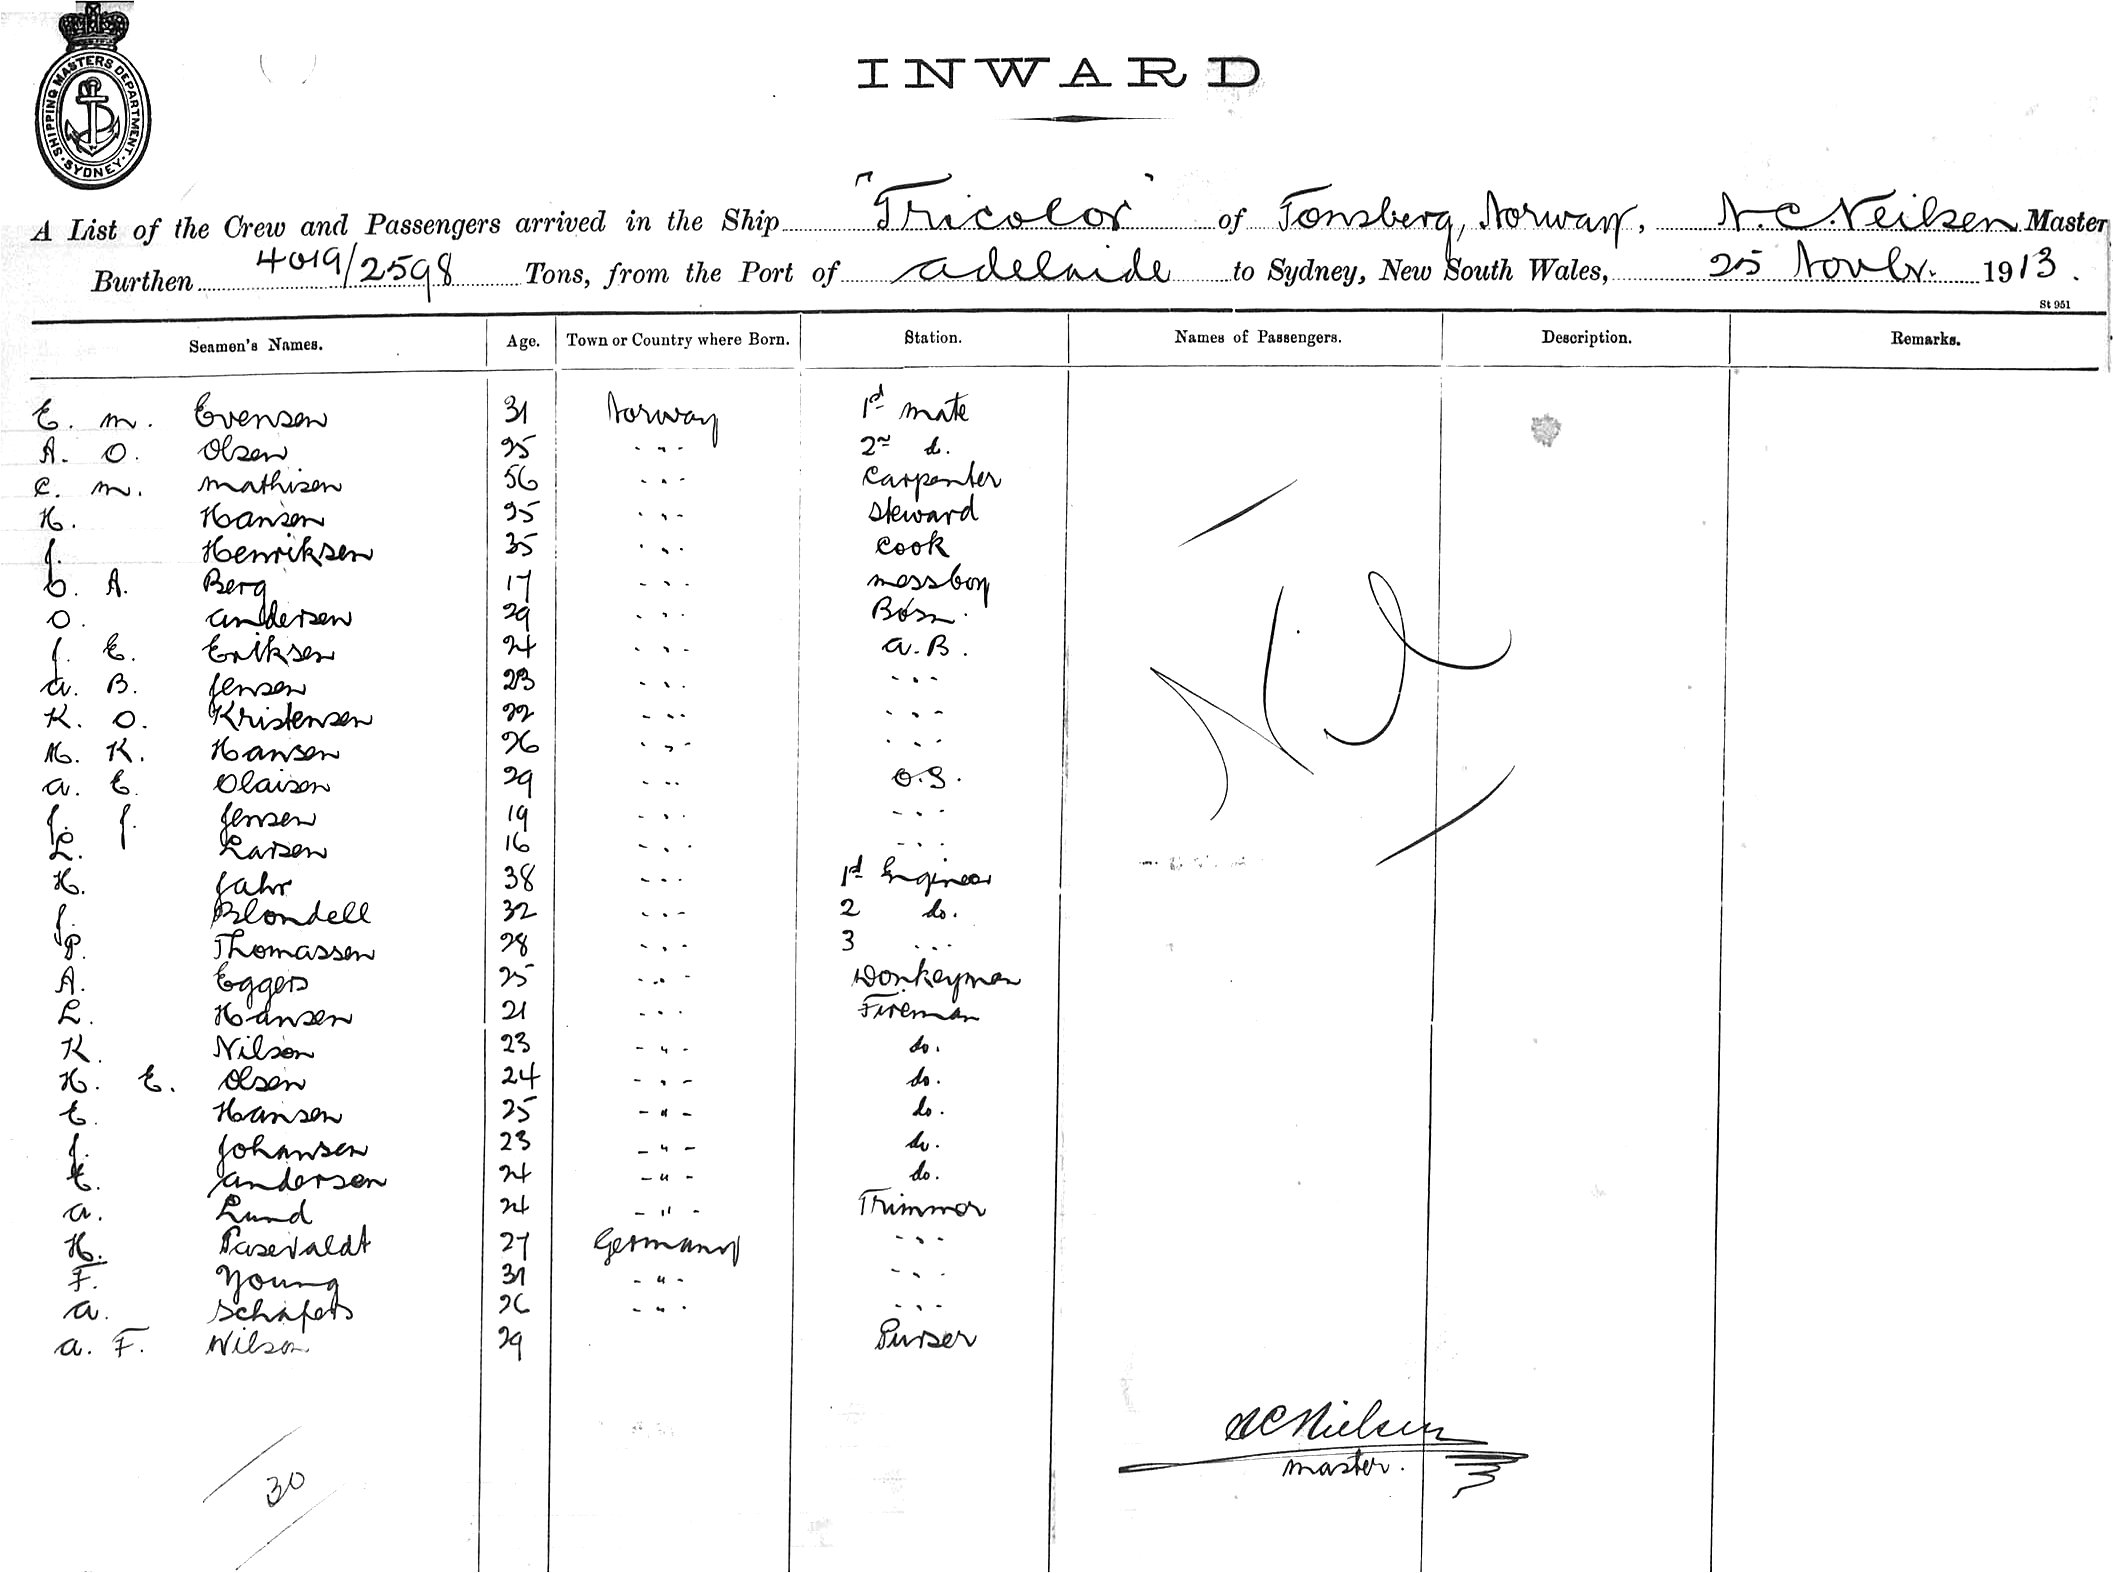 SHIPPING MASTERS DEPARTMENT · SYDNEY ·
INWARD
A List of the Crew and Passengers arrived in the Ship "Tricolor" of Tonsberg, Norway, N. C. Neilsen Master
Burthen 4019/2598 Tons, from the Port of Adelaide to Sydney, New South Wales, 25 Novbr. 1913.
St 951
Seamen's Names. Age. Town or Country where Born. Station. Names of Passengers. Description. Remarks.
E. M. Evensen 31 Norway 1st mate
A. O. Olsen 25 - " - 2nd d.
C. M. Mathisen 56 - " - Carpenter
H. Hansen 25 - " - Steward
J. Henriksen 35 - " - Cook
A. Berg 17 - " - Messboy
O. Andersen 29 - " - Bosn.
J. E. Eriksen 24 - " - A.B.
A. B. Jensen 23 - " - - " -
K. O. Kristensen 22 - " - - " -
M. K. Hansen 26 - " - - " -
A. E. Olaisen 29 - " - O.S.
J. J. Jensen 19 - " - - " -
L. Larsen 16 - " - - " -
H. Jahr 38 - " - 1st Engineer
J. Blondell 32 - " - 2 do.
P. Thomassen 28 - " - 3 - " -
A. Eggers 25 - " - Donkeyman
L. Hansen 21 - " - Fireman
K. Nilson 23 - " - do.
H. E. Olsen 24 - " - do.
E. Hansen 25 - " - do.
J. Johansen 23 - " - do.
E. Anderson 24 - " - do.
A. Lund 24 - " - Trimmer
H. Pasevaldt 27 Germany - " -
F. Young 31 - " - - " -
A. Schafers 26 - " - - " -
A. F. Wilson 29 Purser
Nil
NC Nielsen
master.
30